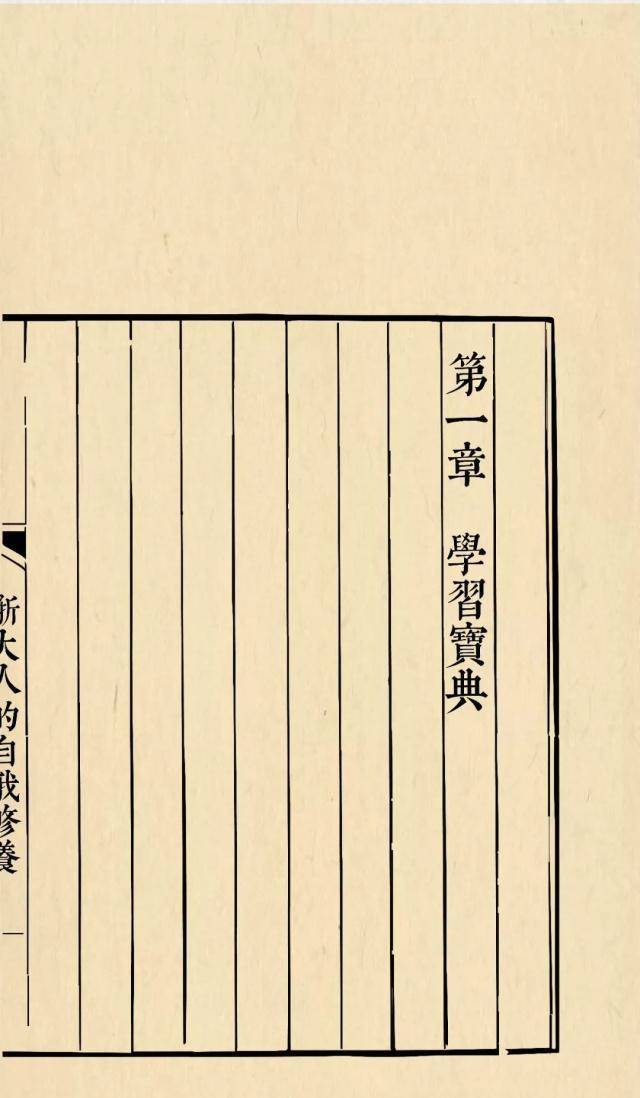 第一章　學習寶典
浙大人的自我修養
一